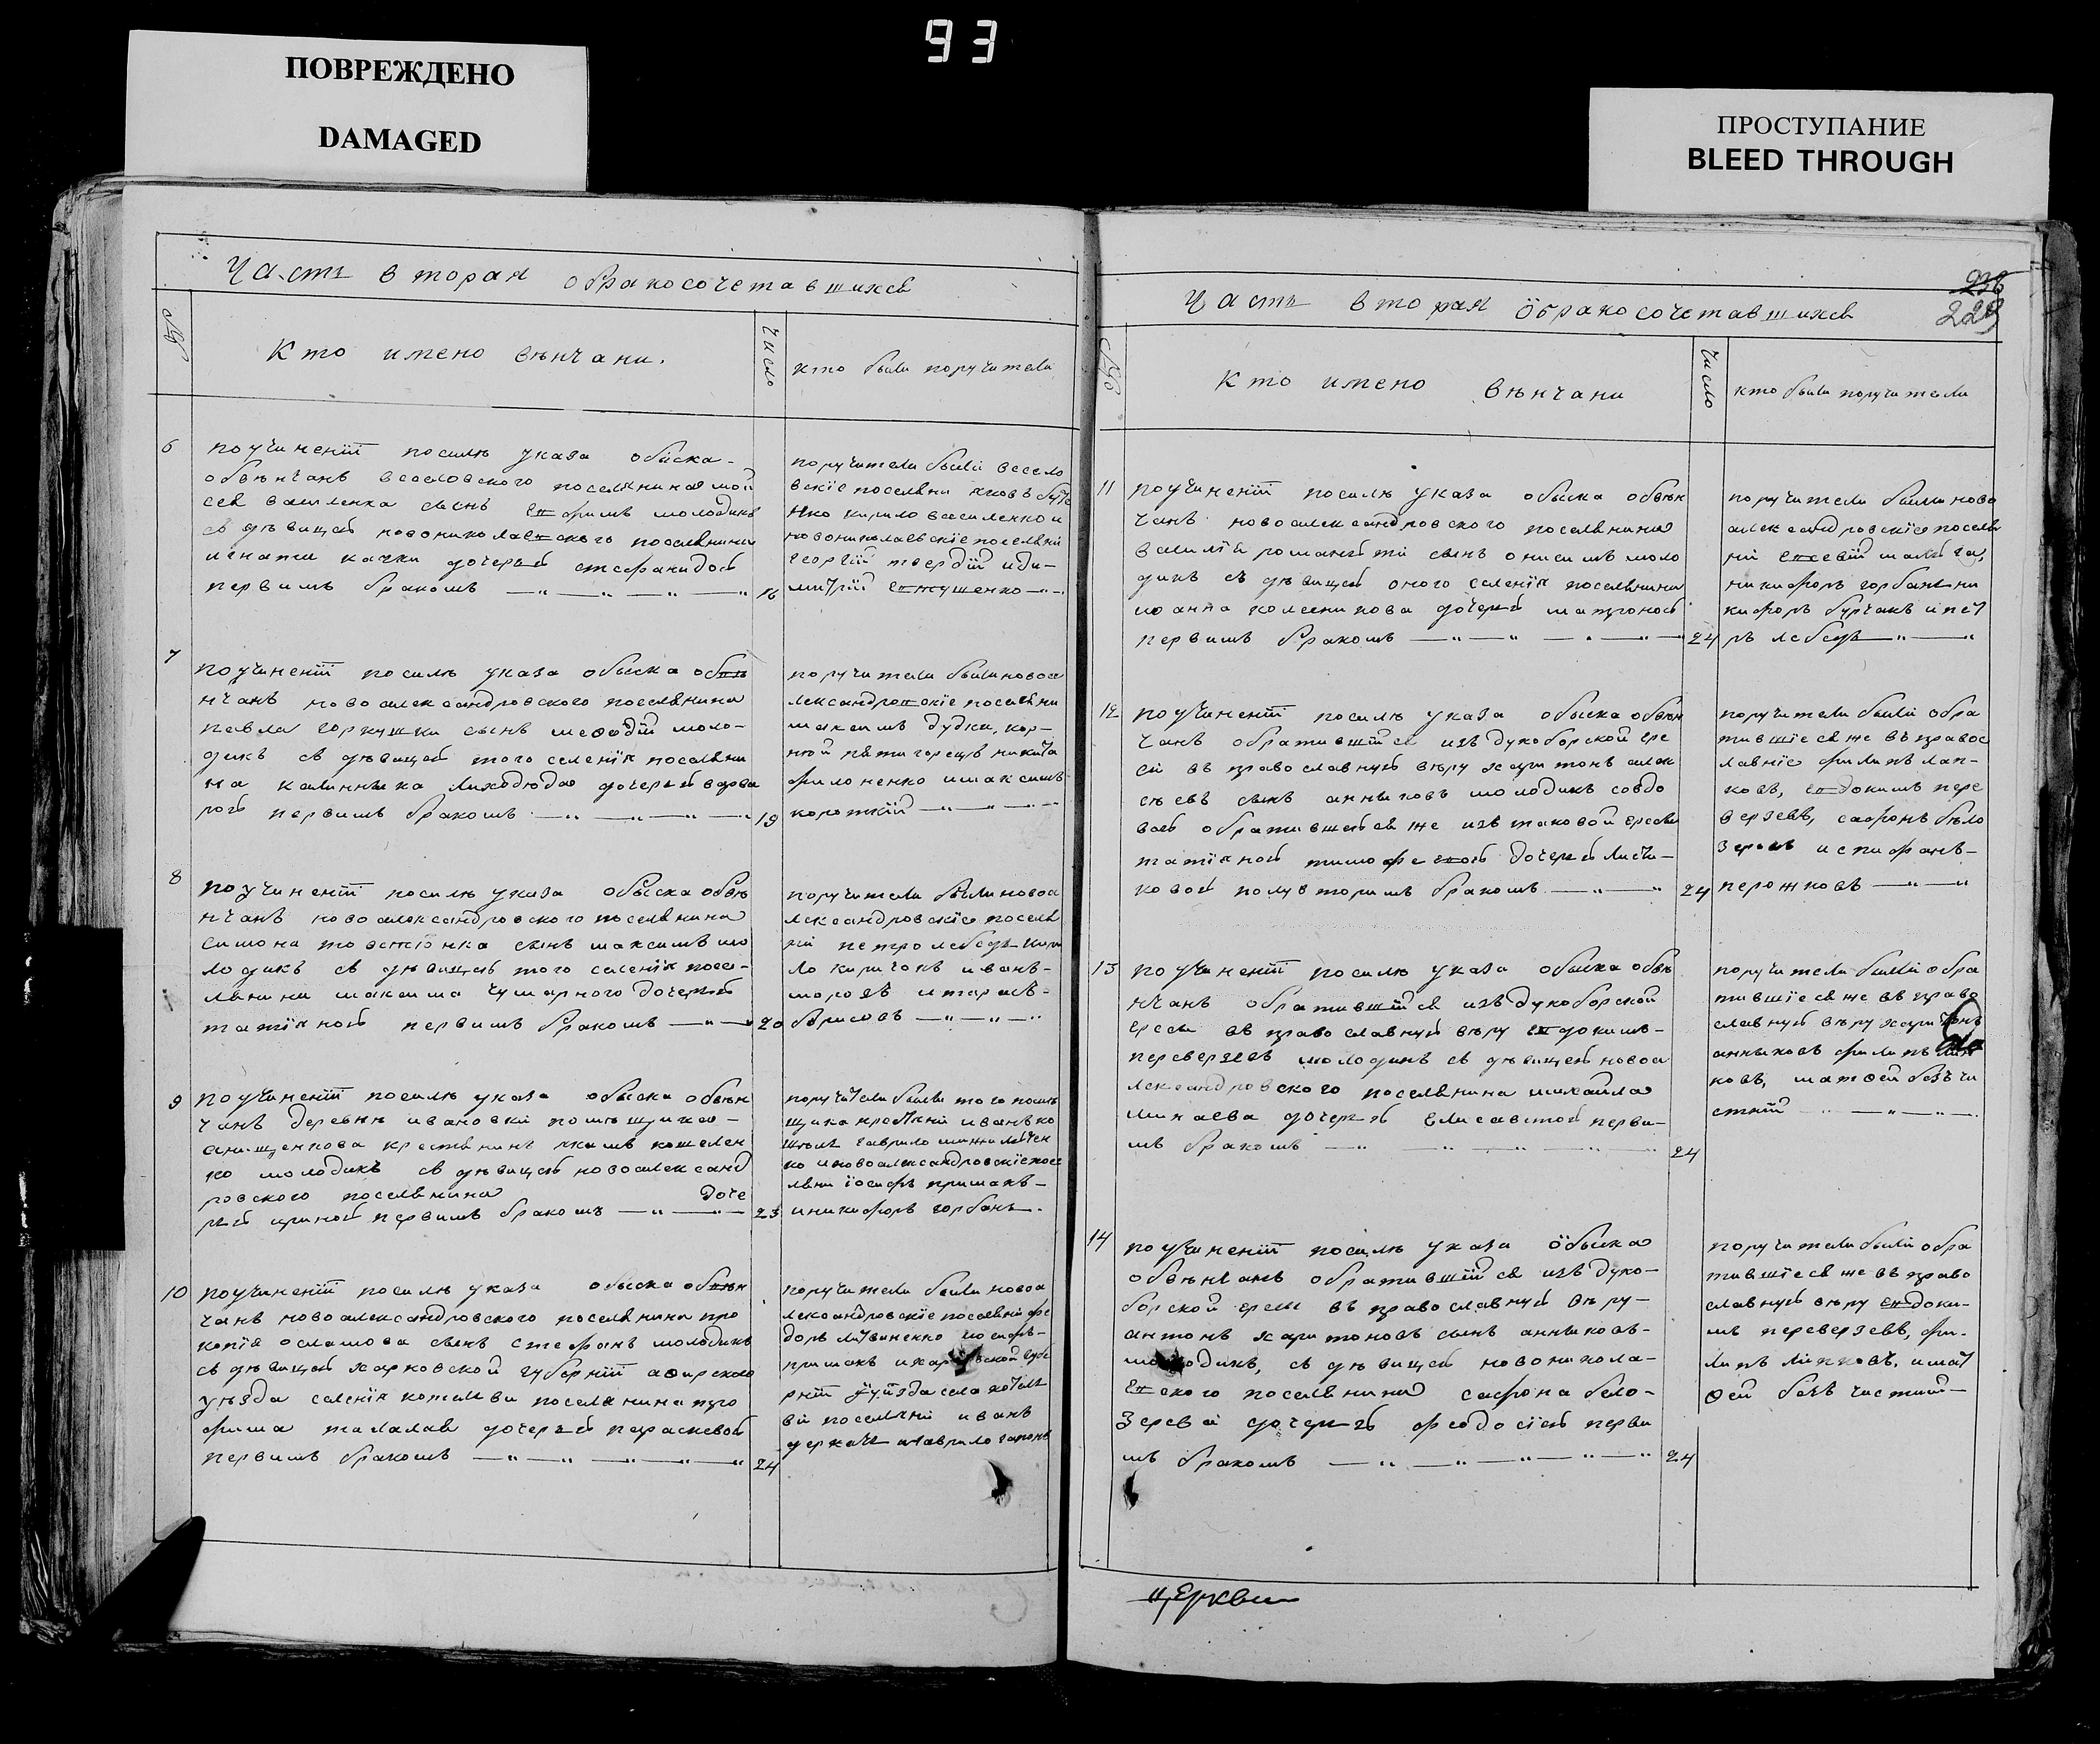 93
ПОВРЕЖДЕНО
DAMAGED
ПРОСТУПАНИЕ
BLEED THROUGH
Часть вторая обракосочетавшихсѧ
№
Кто имено вѣнчани.
Число
кто были поручители
6
поучиненіи посилѣ указа обыска
обвѣнчанъ веселовского поселянина мой
сея василенка сынъ ефимъ молодикъ
съ дѣвицей новониколаевского поселянина
игната качки дочерей стефанидой
первимъ бракомъ
16
поручители были весело
вскіе поселяни
кирило василенко и
новониколаевскіе поселяни
георгій твердий и ди
митрій евтушенко
7
поучиненіи посилѣ указа обыска обвѣ
нчанъ новоалександровского поселянина
павла горкушки сынъ меѳодій моло
дикъ съ дѣвицей того селенія поселяни
на калинника лиходѣда дочерей варва
рой первимъ бракомъ
19
поручители были новоа
лександровскіе поселяни
максимъ дудка, кор
ній пятигорецъ никита
филоненко и максимъ
короткій
8
поучиненіи посилѣ указа обыска обвѣ
нчанъ новоалександровского поселянина
симона сынъ максимъ мо
лодикъ съ дѣвицей того селенія посе
лянина максима чумарного дочерей
татіяной первимъ бракомъ
20
поручители были новоа
лександровскіе поселя
ни петро лебедь кири
ло киричокъ иванъ
морозъ и тарасъ
борисовъ
9
поучиненіи посилѣ указа обыска обвѣн
чанъ деревни ивановки помѣщика
онищенкова крестянинъ якимъ кошелен
ко молодикъ съ дѣвицей новоалександ
ровского поселянина доче
рей ириной первимъ бракомъ
23
поручители были того помѣ
щика крестяни иванъ ко
шель гаврило
ко и новоалександровскіе посе
ляни іосифъ примакъ
и никифоръ горбань
10
поучиненіи посилѣ указа обыска обвѣн
чанъ новоалександровского поселянина про
копія осламова сынъ стефанъ молодикъ
съ дѣвицей харковской губерніи ахтирского
уѣзда селенія котельви поселянина тро
фима талалая дочерей параскевой
первимъ бракомъ
24
поручители были новоа
лександровскіе поселяни фе
доръ литвиненко іосифъ
примакъ и харковской губе
рніи уѣзда села котель
ви поселяни иванъ
деркачъ и гаврило гапонъ
Часть вторая обракосочетавшихсѧ
936
229
№
Кто имено вѣнчани
Число
кто были поручители
11
поучиненіи посилѣ указа обыска обвѣн
чанъ новоалександровского поселянина
василія сынъ онисимъ моло
дикъ съ дѣвицей оного селенія поселянина
иоанна колесникова дочерей матроной
первимъ бракомъ
24
поручители были ново
александровскіе поселя
ни евсевій
никифоръ горбань ни
кифоръ бурчакъ и пет
ръ лебедь
12
поучиненіи посилѣ указа обыска обвѣн
чанъ обратившійся изъ дукоборской ере
си въ православную вѣру харитонъ алек
сѣевъ сынъ анныковъ молодикъ совдо
вой обратившейся же изъ таковой ереси
татіяной тимофеевой дочерей лисич
ковой полувторимъ бракомъ
24
поручители были обра
тившіеся же въ правос
лавніе филипъ лап
ковъ, евдокимъ пере
верзевъ, сафонъ бѣло
зеровъ и епифанъ
перожковъ
13
поучиненіи посилѣ указа обыска обвѣ
нчанъ обратившійся изъ дукоборской
ереси въ православную вѣру евдокимъ
переверзевъ молодикъ съ дѣвицей новоа
лександровского поселянина михайла
минаева дочерей елисаветой перви
мъ бракомъ
24
поручители были обра
тившіеся же въ право
славную вѣру харитонъ
анныковъ филипъ лап
ковъ, матѳей безчи
стній
14
поучиненіи посилѣ указа обыска
обвѣнчанъ обратившійся изъ дуко
борской ереси въ православную вѣру
антонъ харитоновъ сынъ анныковъ
молодикъ, съ дѣвицей новоникола
евского поселянина сафона бело
зерова дочерей феодосіей перви
мъ бракомъ
24
поручители были обра
тившіеся же въ право
славную вѣру евдоки
мъ переверзевъ, фи
липъ лапковъ, и мат
ѳей безчистній
церкви